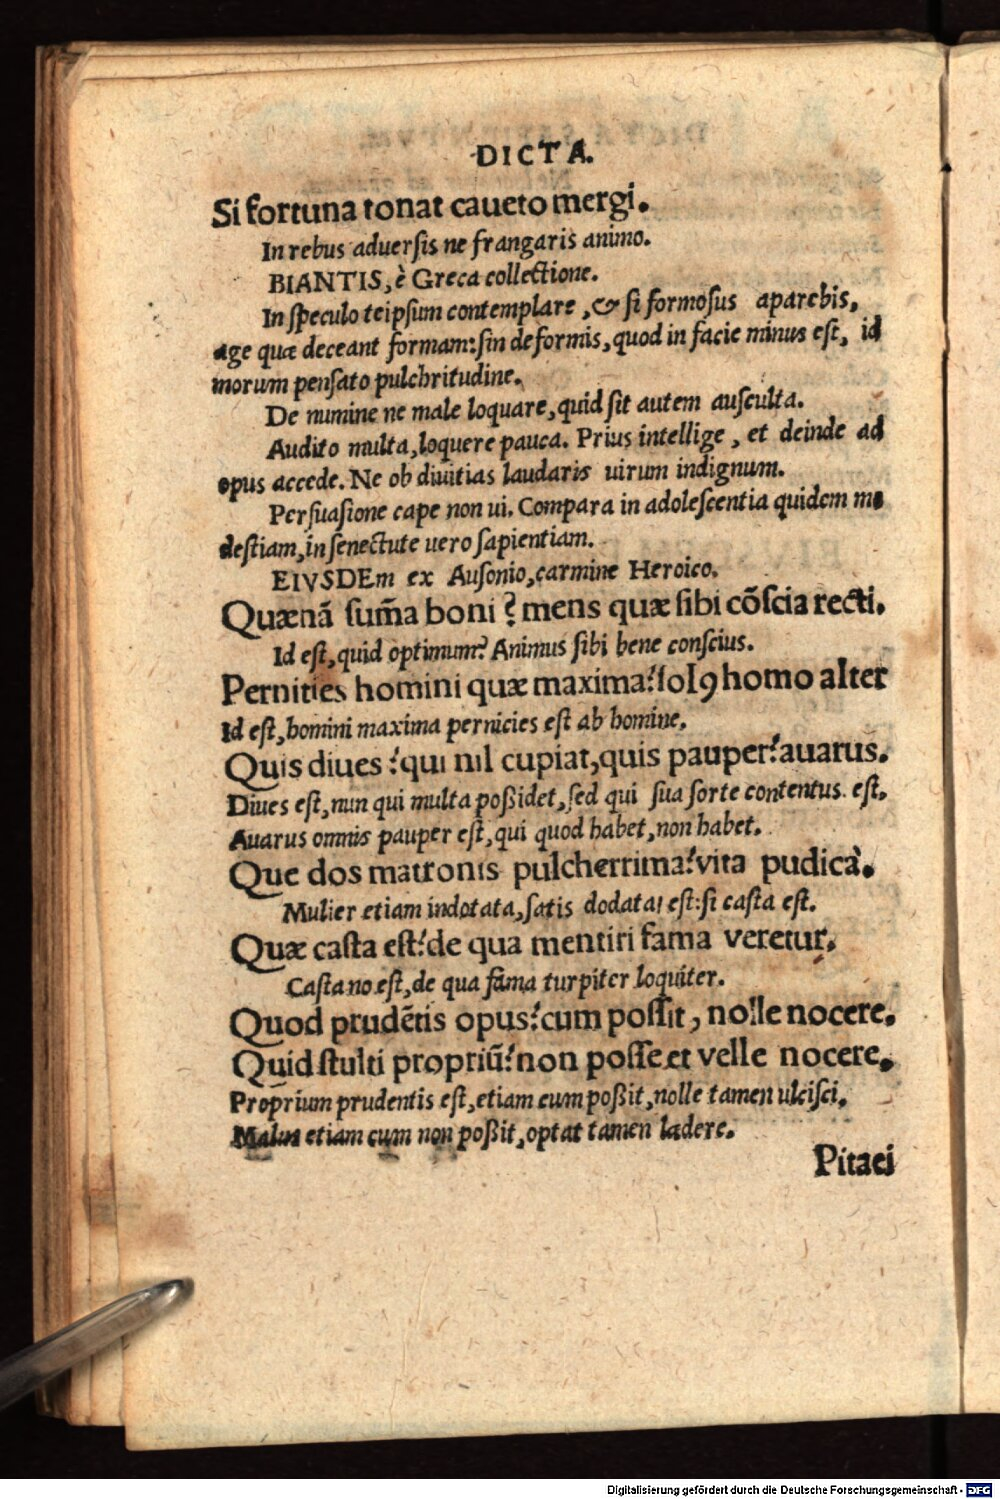 DICTA.
Si fortuna tonat caueto mergi.
In rebus aduersis ne frangaris animo.
BIANTIS, è Greca collectione.
In speculo teipsum contemplare, & si formosus aparebis,
age quæ deceant formam: sin deformis, quod in facie minus est, id
morum pensato pulchritudine.
De numine ne male loquare, quid sit autem ausculta.
Audito multa, loquere pauca. Prius intellige, et deinde ad
opus accede. Ne ob diuitias laudaris uirum indignum.
Persuasione cape non ui. Compara in adolescentia quidem mo
destiam, in senectute uero sapientiam.
EIVSDEm ex Ausonio, carmine Heroico.
Quænā sum̄a boni? mens quæ sibi cōscia recti.
Id est, quid optimum? Animus sibi bene conscius.
Pernities homini quæ maxima? solꝰ homo alter
Id est, homini maxima pernicies est ab homine.
Quis diues? qui nil cupiat, quis pauper? auarus.
Diues est, nun qui multa poßidet, sed qui sua sorte contentus est.
Auarus omnis pauper est, qui quod habet, non habet.
Que dos matronis pulcherrima? vita pudica.
Mulier etiam indotata, satis dodata est: si casta est.
Quæ casta est? de qua mentiri fama veretur.
Casta no est, de qua fama turpiter loquiter.
Quod prudētis opus? cum possit, nolle nocere.
Quid stulti propriū? non posse et velle nocere.
Proprium prudentis est, etiam cum poßit, nolle tamen ulcisci.
Malus etiam cum non poßit, optat tamen ladere.
Pitaci
Digitalisierung gefördert durch die Deutsche Forschungsgemeinschaft - DFG